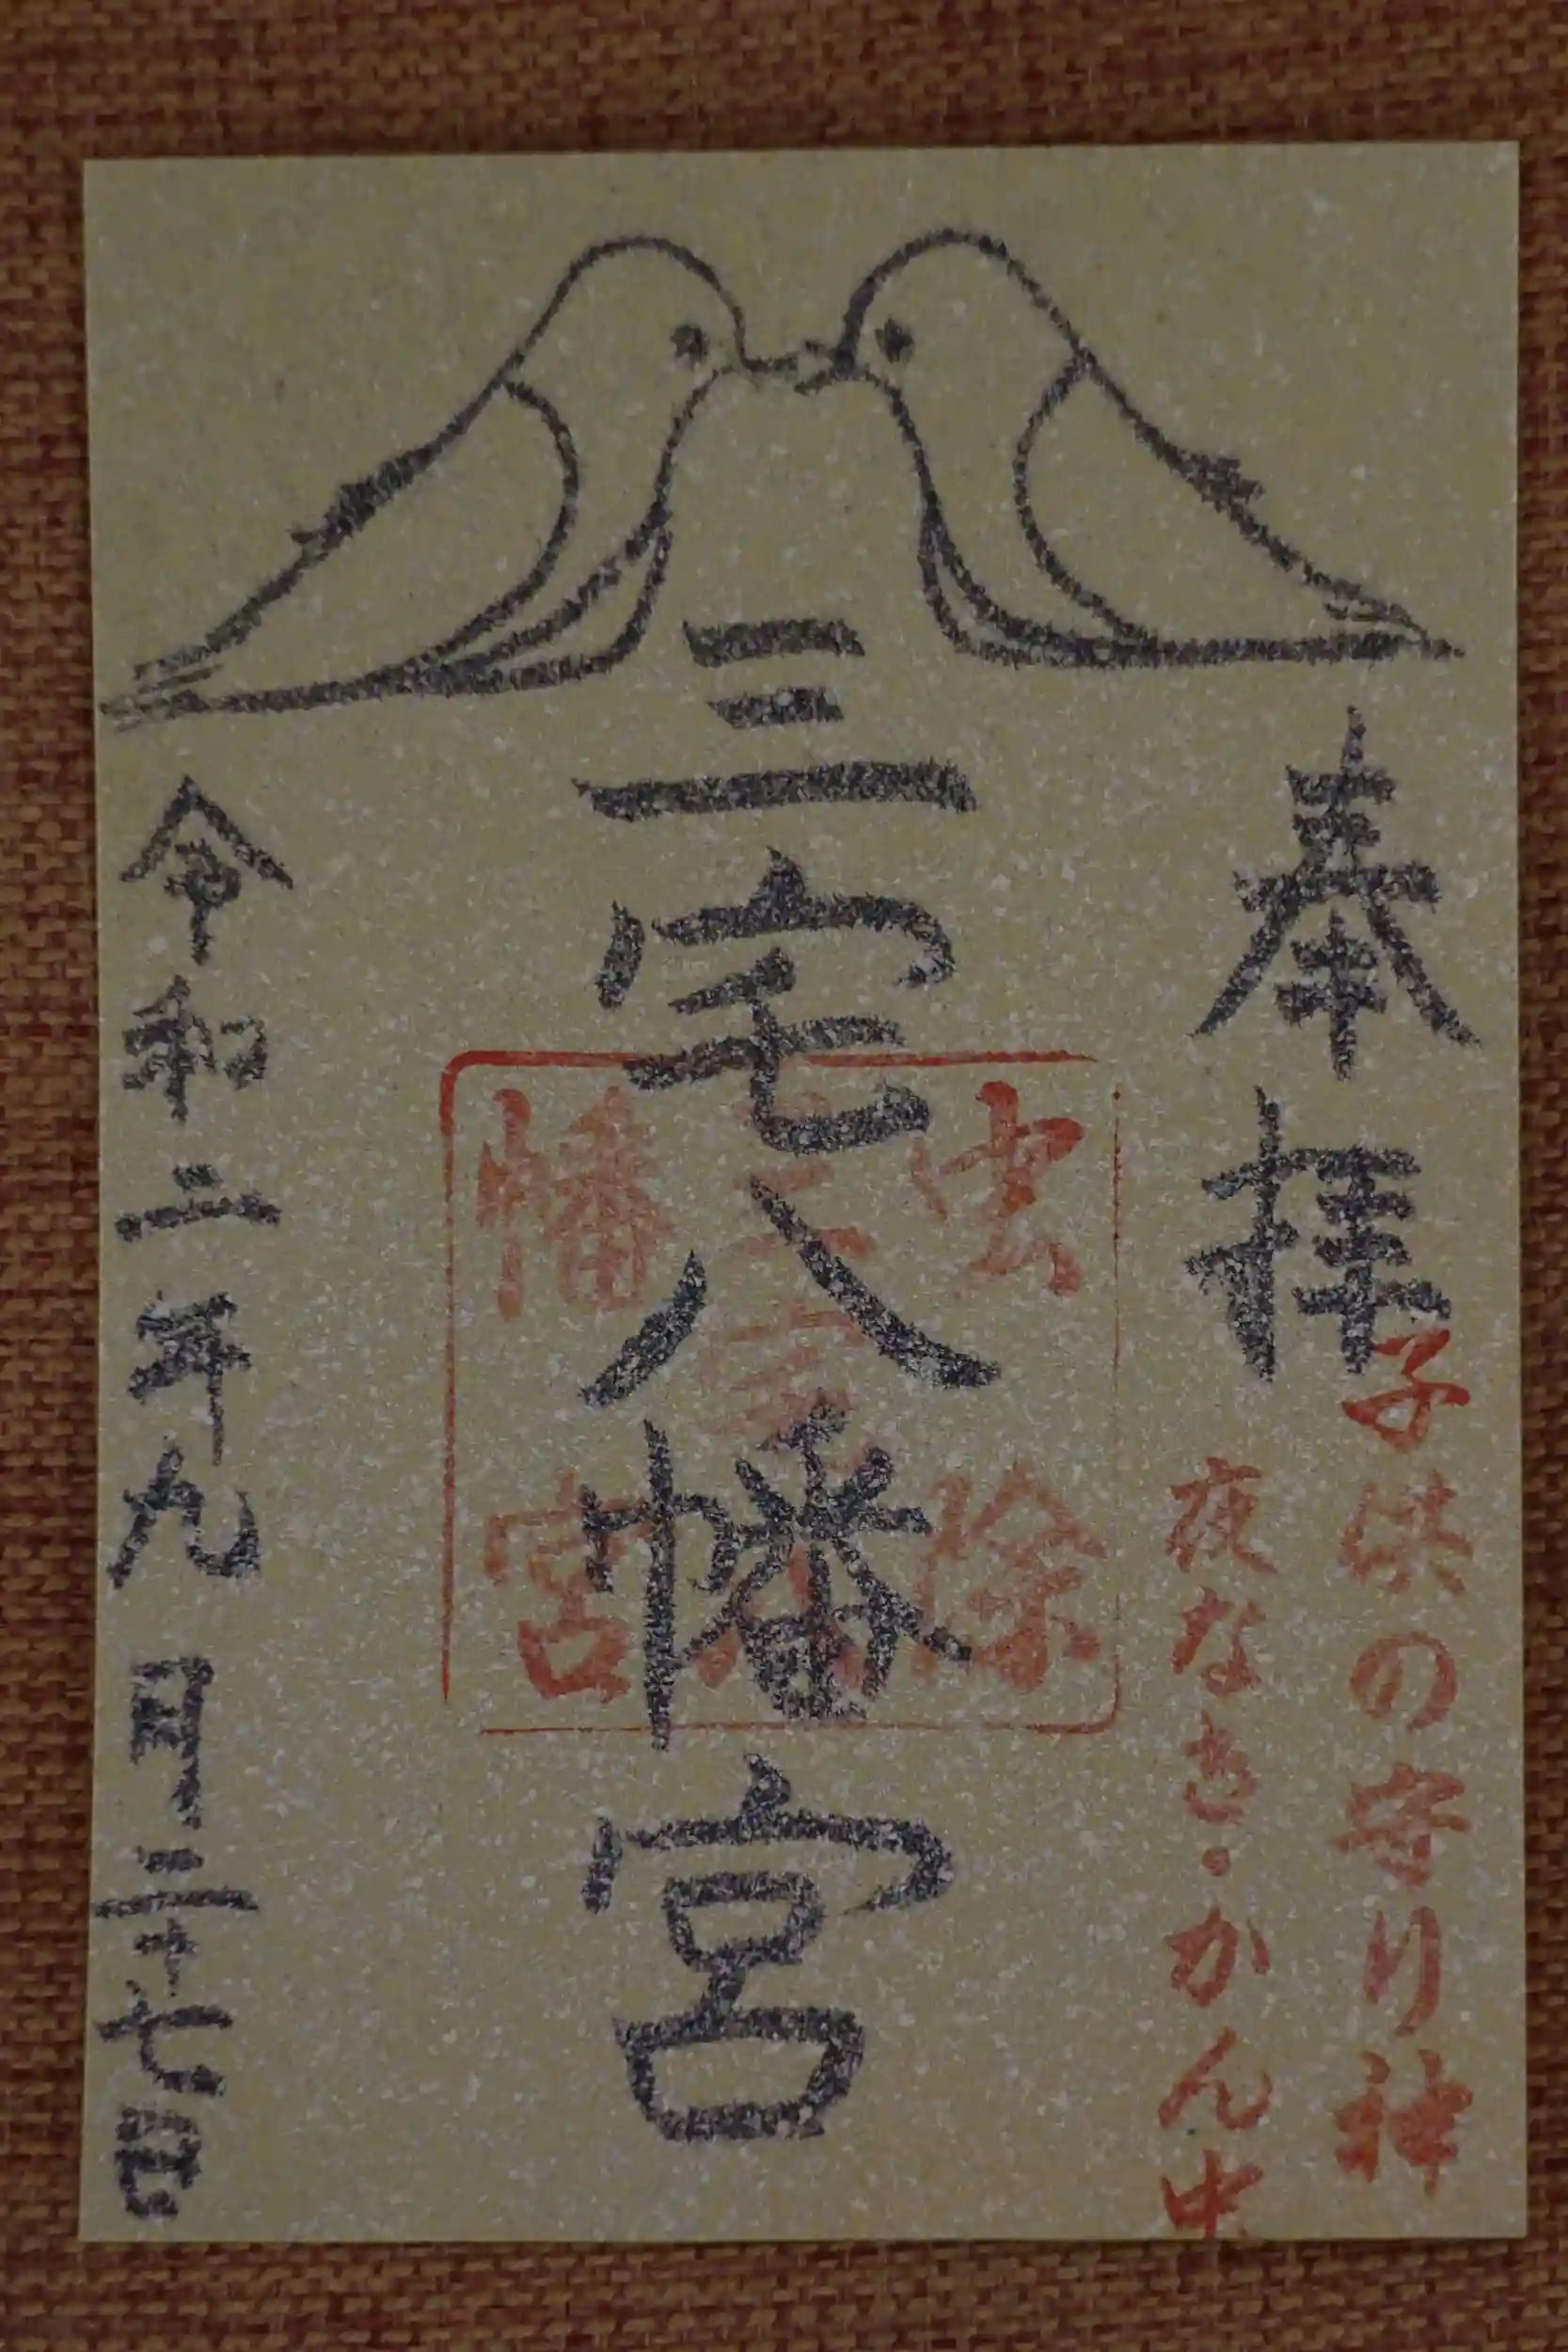 奉拝
子供の守り神
夜なき・かん虫
三宅八幡宮
虫除
三宅八
幡宮
令和二年九月二十七日